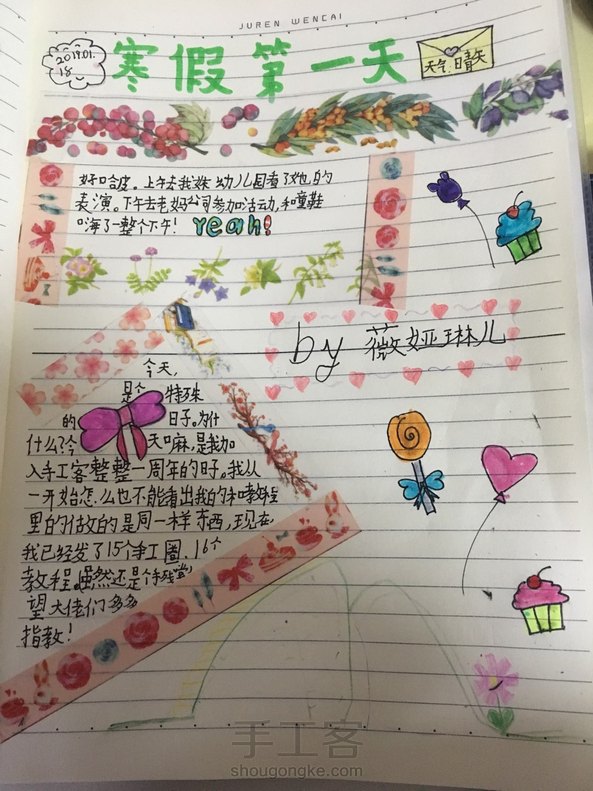 JUREN WENCAI
2019.01.
18
寒假第一天
天气:晴天
好哈皮。上午去我妹幼儿园看了她的
表演。下午去老妈公司参加活动,和童鞋
嗨了一整个下午! Yeah!
by 薇娅琳儿
今天,
是个 特殊
的 日子。为什
什么?今 天嘛,是我加
入手工客整整一周年的日子。我从
一开始怎么也不能看出我的和教程
里的做的是同一样东西,现在
我已经发了15个手工圈,16个
教程,虽然还是个手残党,
望大佬们多多
指教!
手工客
shougongke.com